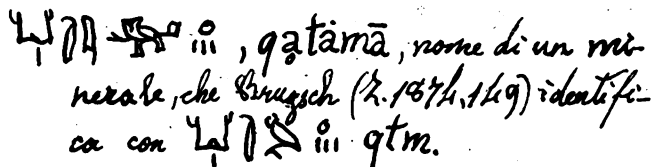 , qa̤tȧmā, nome di un mi-
nerale, che Brugsch (Z. 1874, 149) identifi-
ca con qtm.